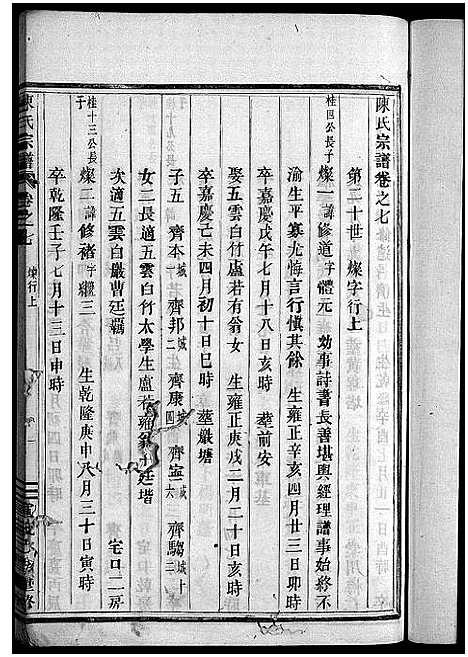 陳氏宗譜卷之七
第二十世 燦字行上
桂四公長子
燦一諱修道字體元 幼事詩書長善堪輿經理譜事始終不
渝生平寡尤悔言行慎其餘 生雍正辛亥四月廿三日卯時
卒嘉慶戊午七月十八日亥時 塟前安車基
娶五雲白竹盧若有翁女 生雍正庚戌二月二十日亥時
卒嘉慶己未四月初十日巳時 塟嚴塘
子五 齊本城一 齊邦城二 齊康城四 齊寍城六 齊騶城十二
女二長適五雲白竹太學生盧
次適五雲白嚴曹廷覇 宅口二房
桂十三公長子
燦二諱修褚字繼三 生乾隆庚申八月三十日寅時
卒乾隆壬子七月十三日申時
陳氏宗譜
卷之七
燦行上